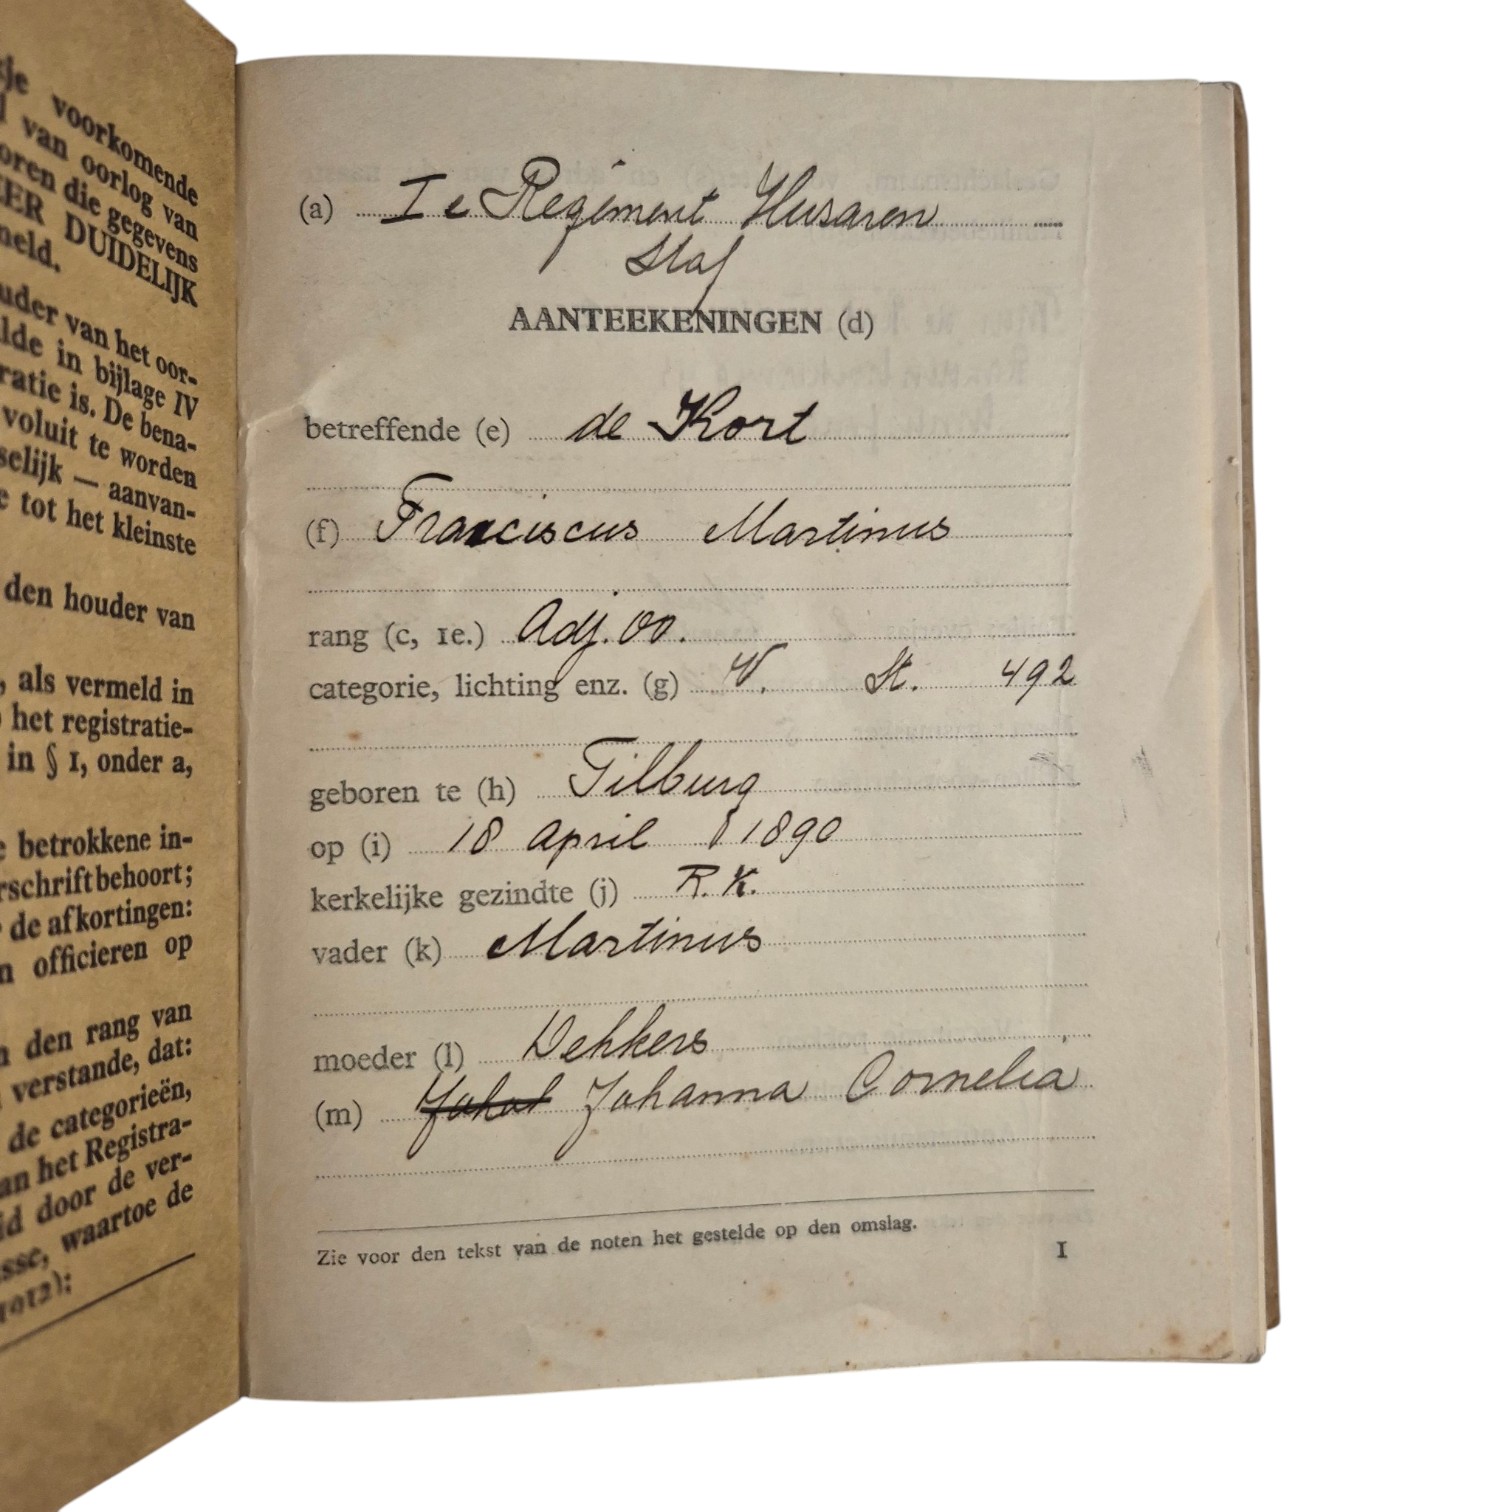 je voorkomende
van oorlog van
oren die gegevens
EER DUIDELIJK
meld.
uder van het oor-
lde in bijlage IV
ratie is. De bena-
voluit te worden
selijk — aanvan-
e tot het kleinste
den houder van
, als vermeld in
het registratie-
in § 1, onder a,
e betrokkene in-
rschrift behoort;
de afkortingen:
n officieren op
n den rang van
verstande, dat:
de categorieën,
an het Registra-
id door de ver-
sse, waartoe de
1912);
(a) Ie Regiment Husaren
Staf
AANTEEKENINGEN (d)
betreffende (e) de Kort
(f) Franciscus Martinus
rang (c, 1e.) Adj. oo.
categorie, lichting enz. (g) V. St. 492
geboren te (h) Tilburg
op (i) 18 April 1890
kerkelijke gezindte (j) R. K.
vader (k) Martinus
moeder (l) Dekkers
(m) Johanna Cornelia
Zie voor den tekst van de noten het gestelde op den omslag.
1